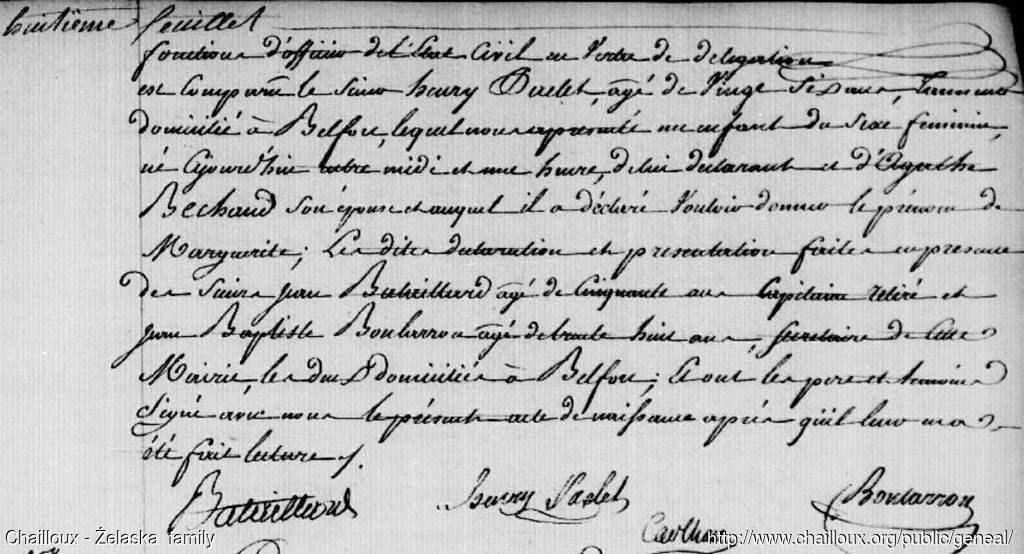 huitième feuillet
fonctions d'officier de l'Etat Civil en Vertu de délégation
est Comparu le Sieur henry agé de Vingt Six ans,
domicilié à Belfort, lequel nous a présenté un enfant du Sexe feminin,
né Cejourd'hui entre midi et une heure, de lui declarant et d'Agathe
Bechaud Son épouse et auquel il a déclaré Vouloir donner le prénom de
Marguerite; Les dites declaration et presentation faites en presence
des Sieurs jean Batuillard agé de Cinquante ans Capitaine retiré et
jean Baptiste Bontarron agé de trente huit ans, Secretaire de Cette
Mairie, les deux domiciliés à Belfort; Et ont les pere et temoins
Signé avec nous le présent acte de naissance après qu'il leur en a
été fait lecture /.
henry Bontarron
Chailloux - Żelaska family
http://www.chailloux.org/public/geneal/